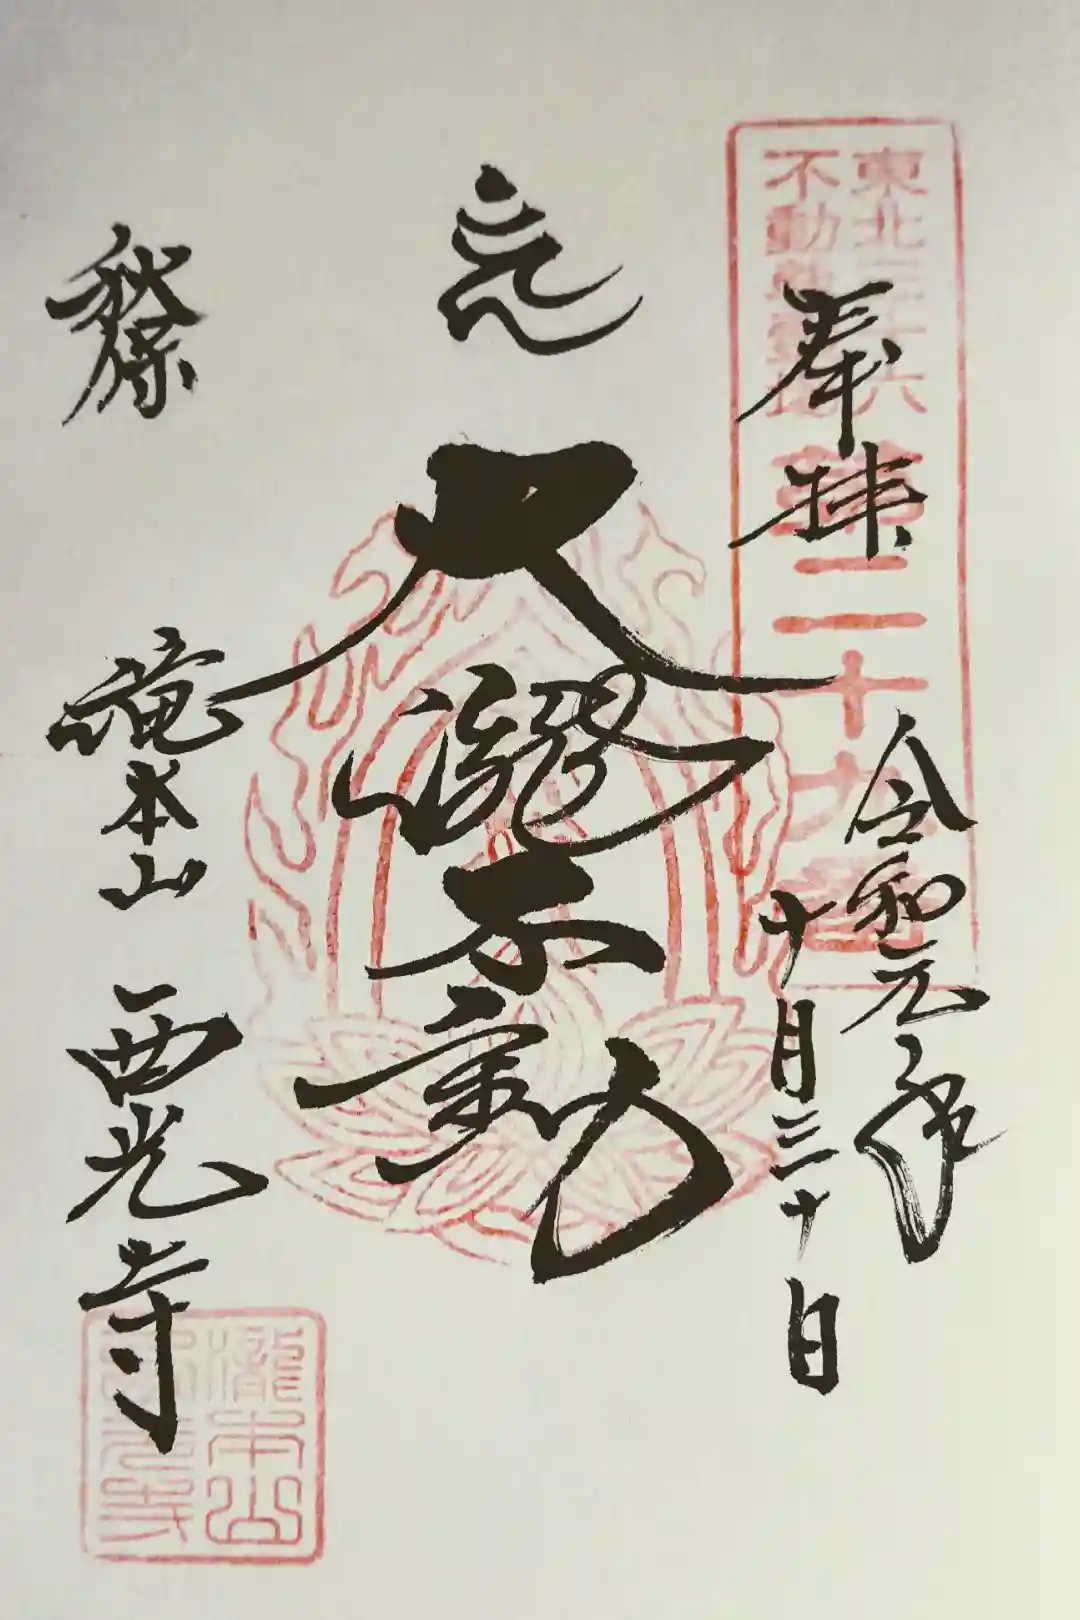 東北三十六
不動尊霊場
第二十九番
奉拝
令和元年
十月三十日
大瀧不動
秋保
滝本山 西光寺
瀧本山
西光寺